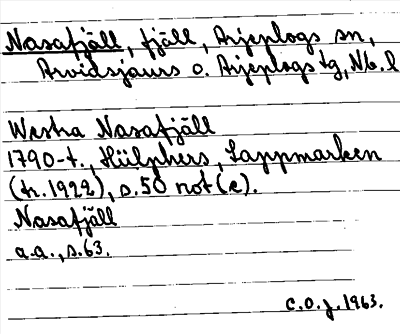 Nasafjäll, fjäll, Arjeplogs sn,
Arvidsjaurs o. Arjeplogs tg, Nb. l
Westra Nasafjäll
1790-t., Hülphers, Lappmarken
(tr. 1922), s. 50 not (e).
Nasafjäll
a.a., s. 63.
C.O.J. 1963.